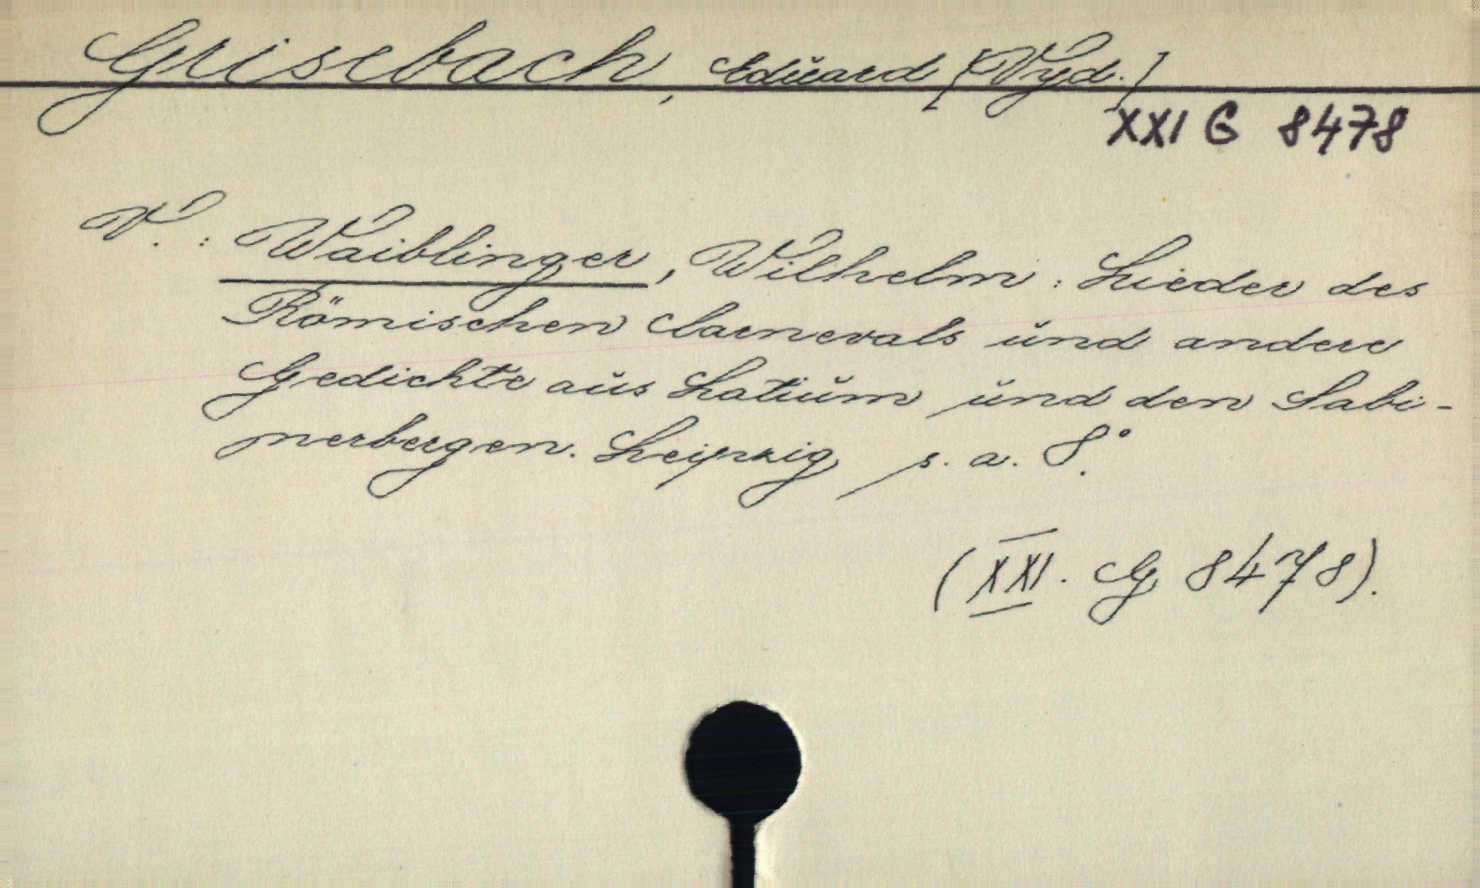 Grisebach, Eduard [Vyd.]
XXI G 8478
V.: Waiblinger, Wilhelm: Lieder des
Römischen Carnevals und andere
Gedichte aus Latium und den Sabi-
nerbergen. Leipzig, s. a. 8°.
(XXI. G 8478).